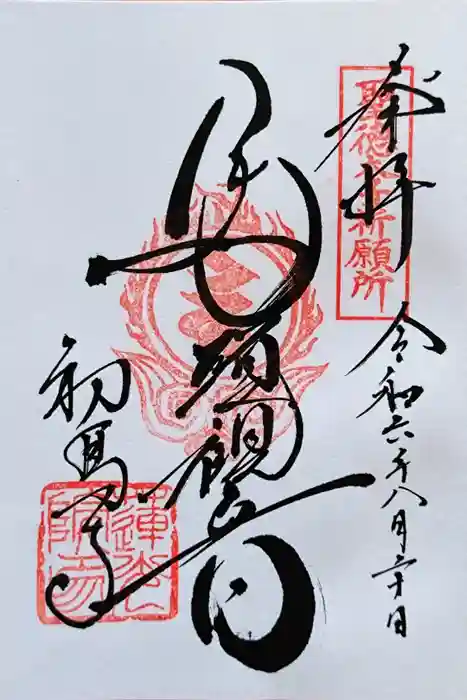 奉拝
聖徳太子祈願所
令和六年八月二十日
馬頭観世音
初馬寺
蓮光院